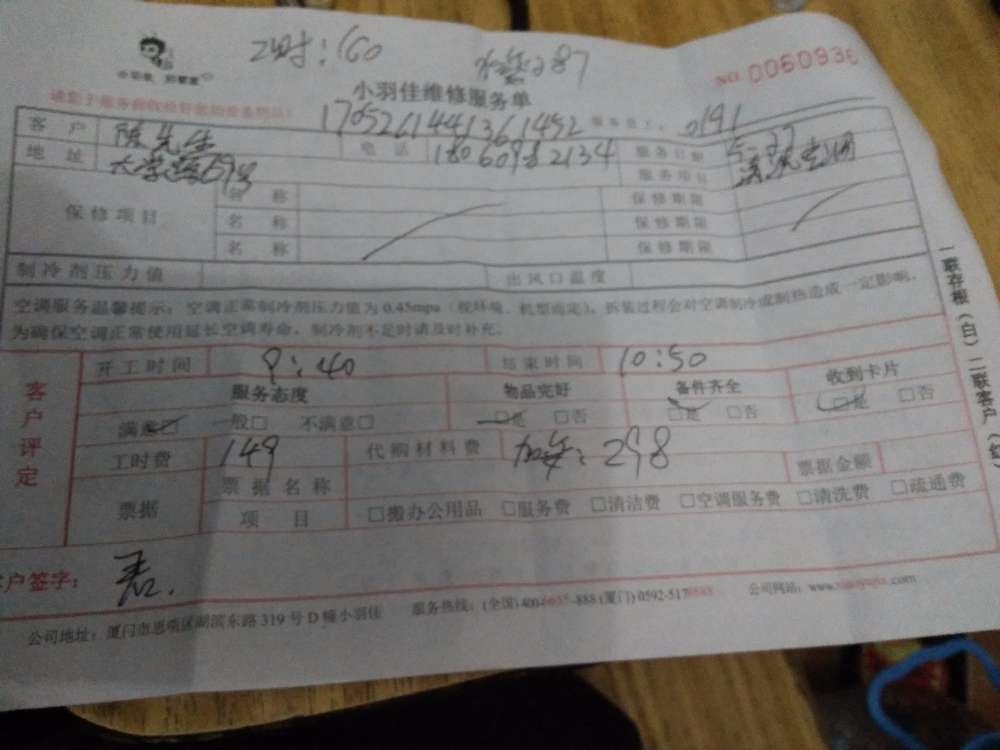 工时：160
加氟287
NO. 0060936
小羽佳维修服务单
1705261441361452 0191
客户 陈先生 电话 18060982134 服务日期 5-27
地址 服务项目 清洗空调
保修项目 名称 保修期限
名称 保修期限
名称 保修期限
制冷剂压力值 出风口温度
空调服务温馨提示：空调正常制冷剂压力值为0.45mpa（视环境、机型而定），拆装过程会对空调制冷或制热造成一定影响，
为确保空调正常使用延长空调寿命，制冷剂不足时请及时补充。
客户评定
开工时间 9：40 结束时间 10：50
服务态度 物品完好 备件齐全 收到卡片
满意☑ 一般□ 不满意□ ☑是 □否 ☑是 □否 ☑是 □否
工时费 149 代购材料费 加氟：298 票据金额
票据 票据名称
项目 □搬办公用品 □服务费 □清洁费 □空调服务费 □清洗费 □疏通费
客户签字：
公司地址：厦门市思明区湖滨东路319号D幢小羽佳 服务热线：(全国)400-6655-888 (厦门)0592-5178688 公司网站：www.xiaoyujia.com
一联存根（白）二联客户（红）